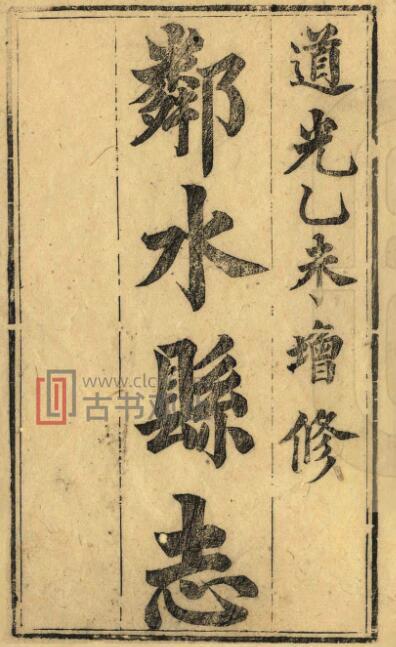 道光乙未增修
鄰水縣志
www.clc
古书